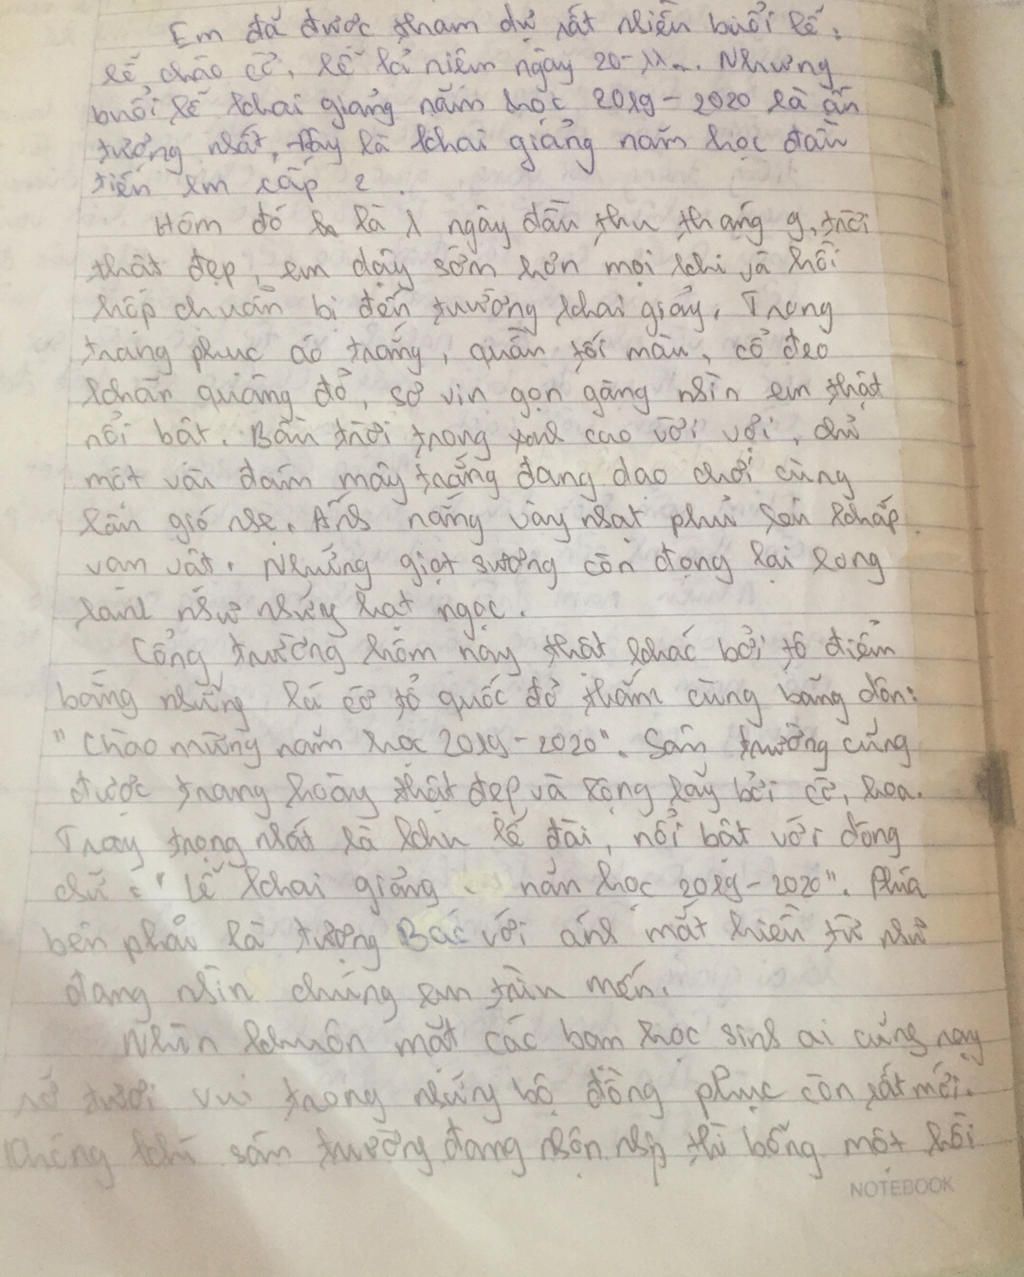 Em đã được tham dự rất nhiều buổi lễ:
lễ chào cờ, lễ kỉ niệm ngày 20-11... Nhưng
buổi lễ khai giảng năm học 2019-2020 là ấn
tượng nhất, đây là khai giảng năm học đầu
tiên em cấp 2.
Hôm đó là 1 ngày đầu thu tháng 9, trời
thật đẹp, em dậy sớm hơn mọi khi và hồi
hộp chuẩn bị đến trường khai giảng. Trong
trang phục áo trắng, quần tối màu, cổ đeo
khăn quàng đỏ, sơ vin gọn gàng nhìn em thật
nổi bật. Bầu trời trong xanh cao vời vợi, chỉ
một vài đám mây trắng đang dạo chơi cùng
làn gió nhẹ. Ánh nắng vàng nhạt phủ lên khắp
vạn vật. Những giọt sương còn đọng lại long
lanh như những hạt ngọc.
Cổng trường hôm nay thật khác bởi tô điểm
bằng những lá cờ tổ quốc đỏ thắm cùng băng đôn:
"Chào mừng năm học 2019-2020". Sân trường cũng
được trang hoàng thật đẹp và lộng lẫy bởi cờ, hoa.
Trang trọng nhất là khu lễ đài, nổi bật với dòng
chữ: "Lễ khai giảng năm học 2019-2020". Phía
bên phải là tượng Bác với ánh mắt hiền từ như
đang nhìn chúng em trìu mến.
Nhìn khuôn mặt các bạn học sinh ai cũng rạng
rỡ tươi vui trong những bộ đồng phục còn rất mới.
Không khí sân trường đang nhộn nhịp thì bỗng một hồi
NOTEBOOK